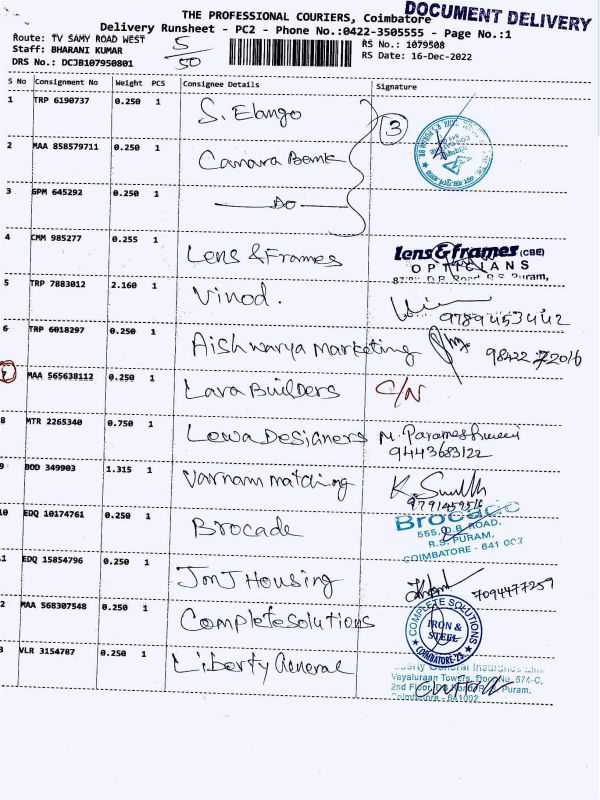 THE PROFESSIONAL COURIERS, Coimbatore
DOCUMENT DELIVERY
Delivery Runsheet - PC2 - Phone No.:0422-3505555 - Page No.:1
Route: TV SAMY ROAD WEST
5/50
RS No.: 1079508
Staff: BHARANI KUMAR
RS Date: 16-Dec-2022
DRS No.: DCJB107950801
S No Consignment No Weight PCS Consignee Details Signature
1 TRP 6190737 0.250 1 S. Elango
3
2 MAA 858579711 0.250 1 Canara Bank
3 GPM 645292 0.250 1 DO
4 CMM 985277 0.255 1 Lens & Frames
lens & frames (CBE)
OPTICIANS
Puram,
5 TRP 7883012 2.160 1 Vinod.
9789453442
6 TRP 6018297 0.250 1 Aishwarya marketing 98422 72016
7 MAA 565638112 0.250 1 Lara Builders C/N
8 MTR 2265340 0.750 1 Lowa Designers M. Parameshwari
9443683122
9 BOD 349903 1.315 1 Varnam matching
10 EDQ 10174761 0.250 1 Brocade
Brocade
555, D.B. ROAD,
R.S. PURAM,
COIMBATORE - 641 003
1 EDQ 15854796 0.250 1 JmJ Housing 7094477259
2 MAA 568307548 0.250 1 Complete Solutions
COMPLETE SOLUTIONS
IRON &
STEEL
COIMBATORE-25.
3 VLR 3154787 0.250 1 Liberty General
Liberty General Insurance
Vayaluraan Towers, Door No. 574-C,
2nd Floor, Puram,
Coimbatore - 641002